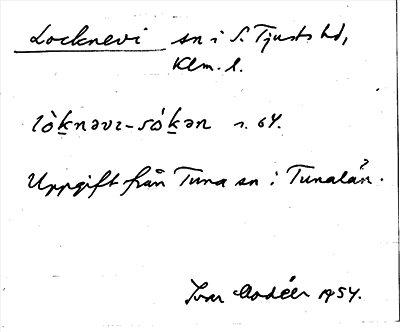 Locknevi sn i S. Tjusts hd,
Klm. l.
lòḵnəvɪ-sóḵən s. 64.
Uppgift från Tuna sn i Tunalän.
Ivar Modéer 1954.